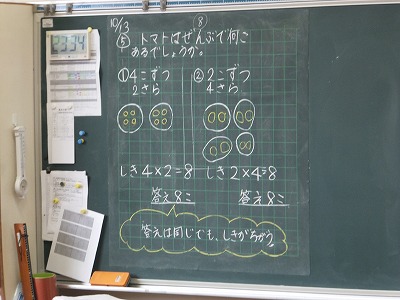 10/3
⑧
⑤ トマトはぜんぶで何こ
あるでしょうか。
①4こずつ
2さら
②2こずつ
4さら
しき4×2=8
しき2×4=8
答え8こ
答え8こ
答えは同じでも、しきがちがう。